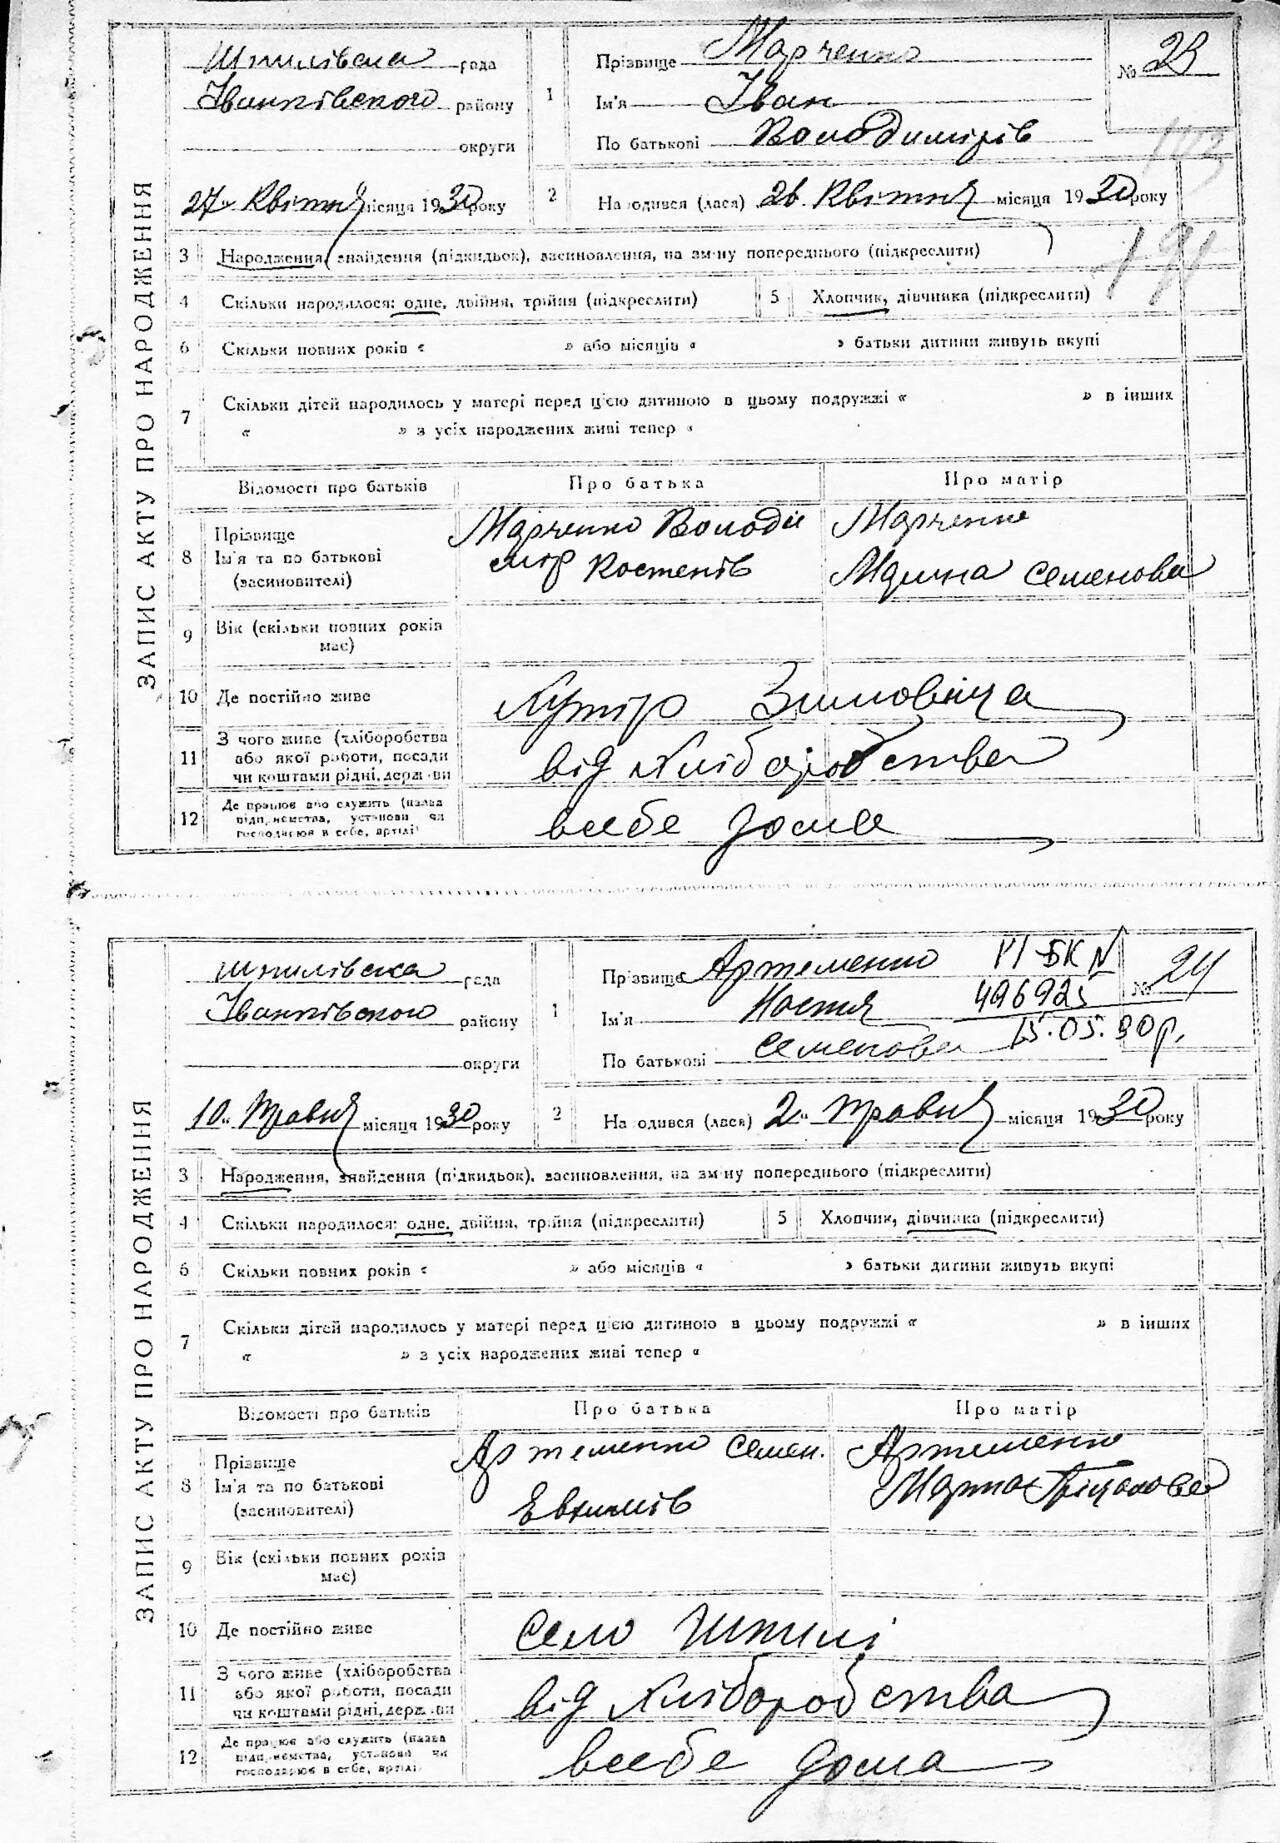 ЗАПИС АКТУ ПРО НАРОДЖЕННЯ
Шпилівська рада
Іванківського району
округи
27 Квітня місяця 1930 року
1 Прізвище Марченко
Ім'я Іван
По батькові Володимирів
№ 23
2 Народився (лася) 26 Квітня місяця 1930 року
191
3 Народження, знайдення (підкидьок), васиновлення, на зміну попереднього (підкреслити)
4 Скільки народилося: одне, двійня, трійня (підкреслити) 5 Хлопчик, дівчинка (підкреслити)
6 Скільки повних років « » або місяців « » батьки дитини живуть вкупі
7 Скільки дітей народилось у матері перед цією дитиною в цьому подружжі « » в інших
« » з усіх народжених живі тепер «
Відомості про батьків Про батька Про матір
8 Прізвище Ім'я та по батькові (засиновителі)
Марченко Володи
мір Костенів
Марченко
Марина Семенова
9 Вік (скільки повних років має)
10 Де постійно живе Хутір Зимовіча
11 З чого живе (хліборобства або якої роботи, посади чи коштами рідні, держави
від хліборобства
12 Де працює або служить (назва підприємства, установи чи господарює в себе, артілі)
всебе дома
ЗАПИС АКТУ ПРО НАРОДЖЕННЯ
Шпилівска рада
Іванківського району
округи
10 Травня місяця 1930 року
1 Прізвище Артеменко
Ім'я Настя
По батькові Семенова
VI-БК №
496925
15.05.90р.
№ 24
2 Народився (лася) 2 Травня місяця 1930 року
3 Народження, знайдення (підкидьок), васиновлення, на зміну попереднього (підкреслити)
4 Скільки народилося: одне, двійня, трійня (підкреслити) 5 Хлопчик, дівчинка (підкреслити)
6 Скільки повних років « » або місяців « » батьки дитини живуть вкупі
7 Скільки дітей народилось у матері перед цією дитиною в цьому подружжі « » в інших
« » з усіх народжених живі тепер «
Відомості про батьків Про батька Про матір
8 Прізвище Ім'я та по батькові (засиновителі)
Артеменко Семен.
Евхимів
Артеменко
Марта
9 Вік (скільки повних років має)
10 Де постійно живе село Шпилі
11 З чого живе (хліборобства або якої роботи, посади чи коштами рідні, держави
від хліборобства
12 Де працює або служить (назва підприємства, установи чи господарює в себе, артілі)
всебе дома